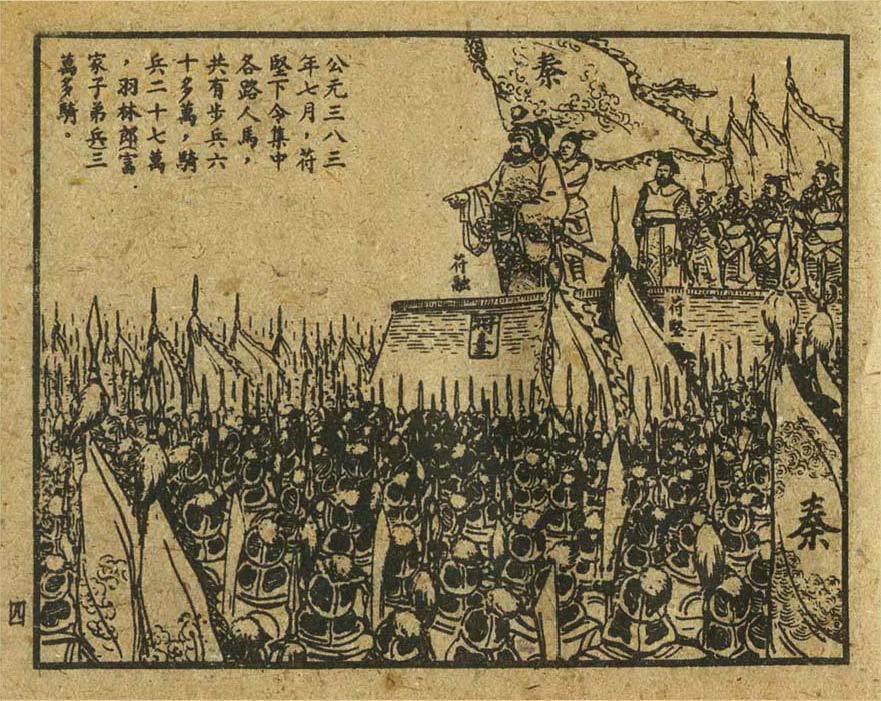 公元三八三
年七月，苻
堅下令集中
各路人馬，
共有步兵六
十多萬，騎
兵二十七萬
，羽林郎（富
家子弟兵）三
萬多騎。
秦
苻融
苻堅
將臺
秦
四